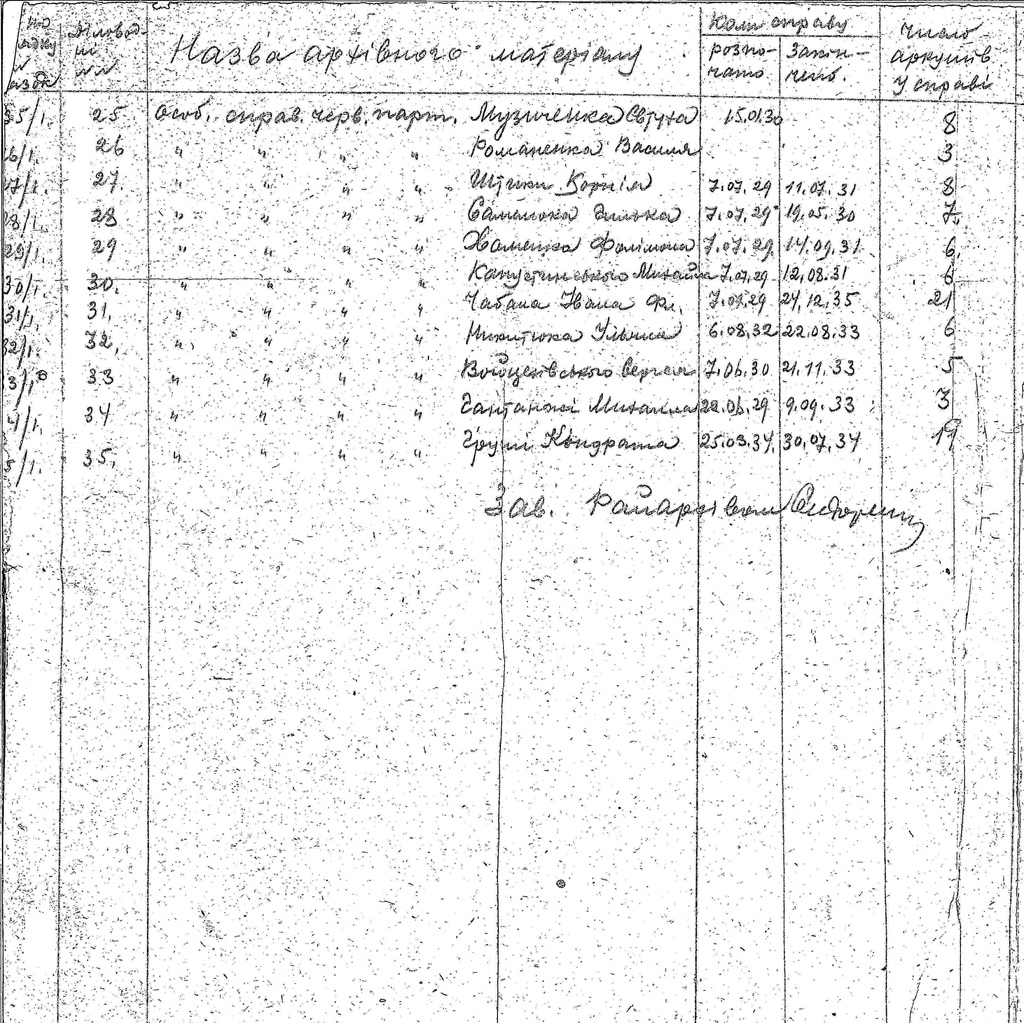 Назва архівного матеріалу
Коли справу
розпо-чато
Закін-чено.
Число аркушів у справі
25/1. 25 Особ. справ. черв. парт. Музиченка Євтуха 15.01.30 8
26/1. 26 " " " " Романенка Василя 3
27/1. 27. " " " " Штики Корнія 7.07.29 11.07.31 8
28/1. 28 " " " " 7.07.29 19.05.30 7
29/1. 29 " " " " Хоменка Филимона 7.07.29 14.09.31 6
30/1. 30. " " " " Капустинського Михайла 7.07.29 12.08.31 6
31/1. 31. " " " " Чабана Івана Ф. 7.07.29 24.12.35 21
32/1. 32. " " " " Никитюка Уляна 6.08.32 22.08.33 6
3/1 33 " " " " Войцехівського Сергія 7.06.30 21.11.33 5
4/1. 34 " " " " Михайла 22.06.29 9.09.33 3
5/1. 35. " " " " Кондрата 25.03.34 30.07.34 19
Зав. Райархівом